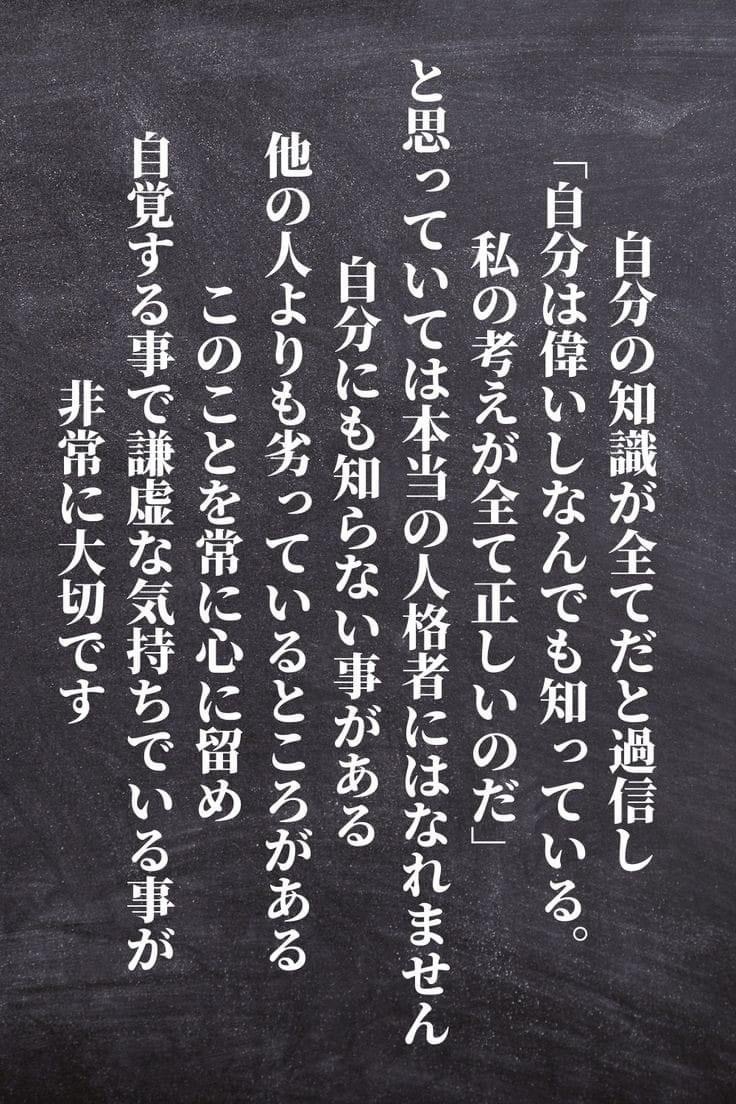 自分の知識が全てだと過信し
「自分は偉いしなんでも知っている。
私の考えが全て正しいのだ」
と思っていては本当の人格者にはなれません
自分にも知らない事がある
他の人よりも劣っているところがある
このことを常に心に留め
自覚する事で謙虚な気持ちでいる事が
非常に大切です